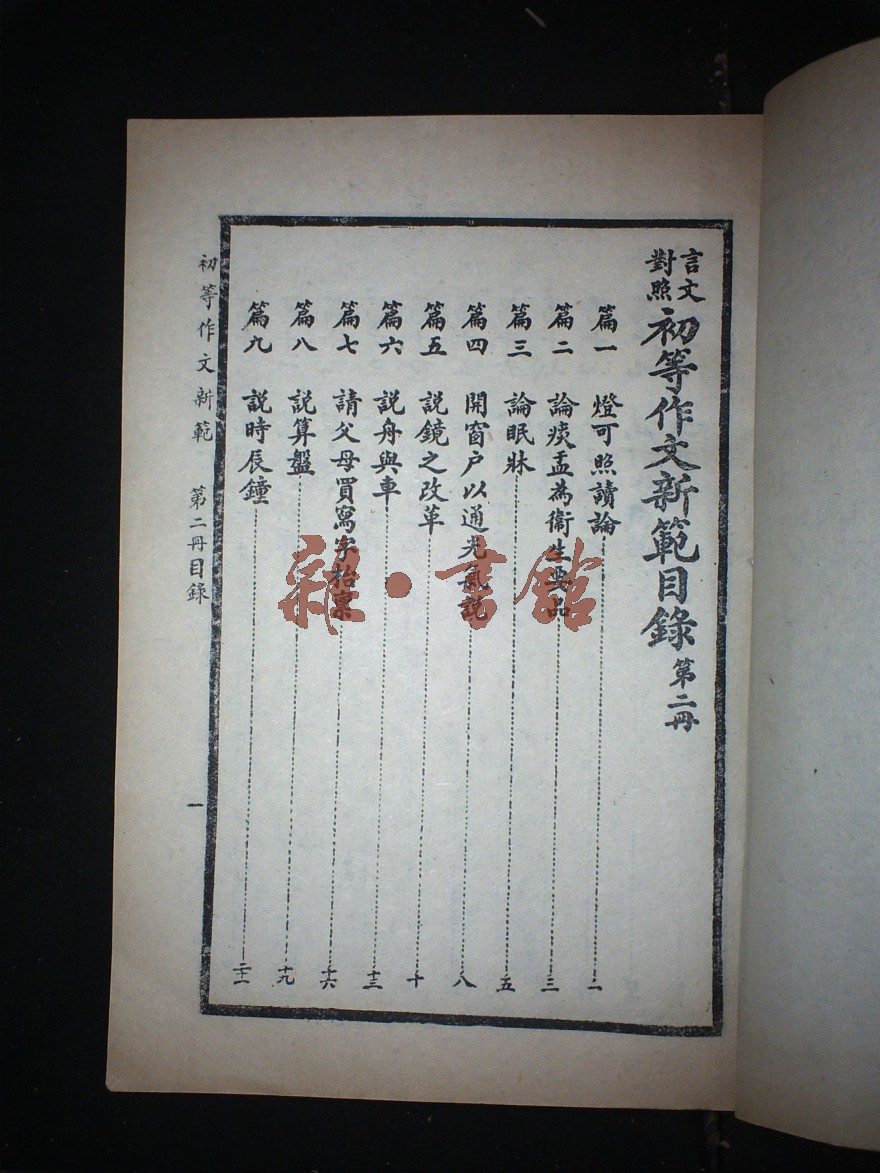 言文對照初等作文新範目錄 第二冊
篇一 燈可照讀論 二
篇二 論痰盂為衛生要品 三
篇三 論眠牀 五
篇四 開窗户以通光氣説 八
篇五 説鏡之改革 十
篇六 説舟與車 十三
篇七 請父母買寫字枱稟 十六
篇八 説算盤 十九
篇九 説時辰鐘 二十一
初等作文新範 第二冊目錄 一
雜·書館